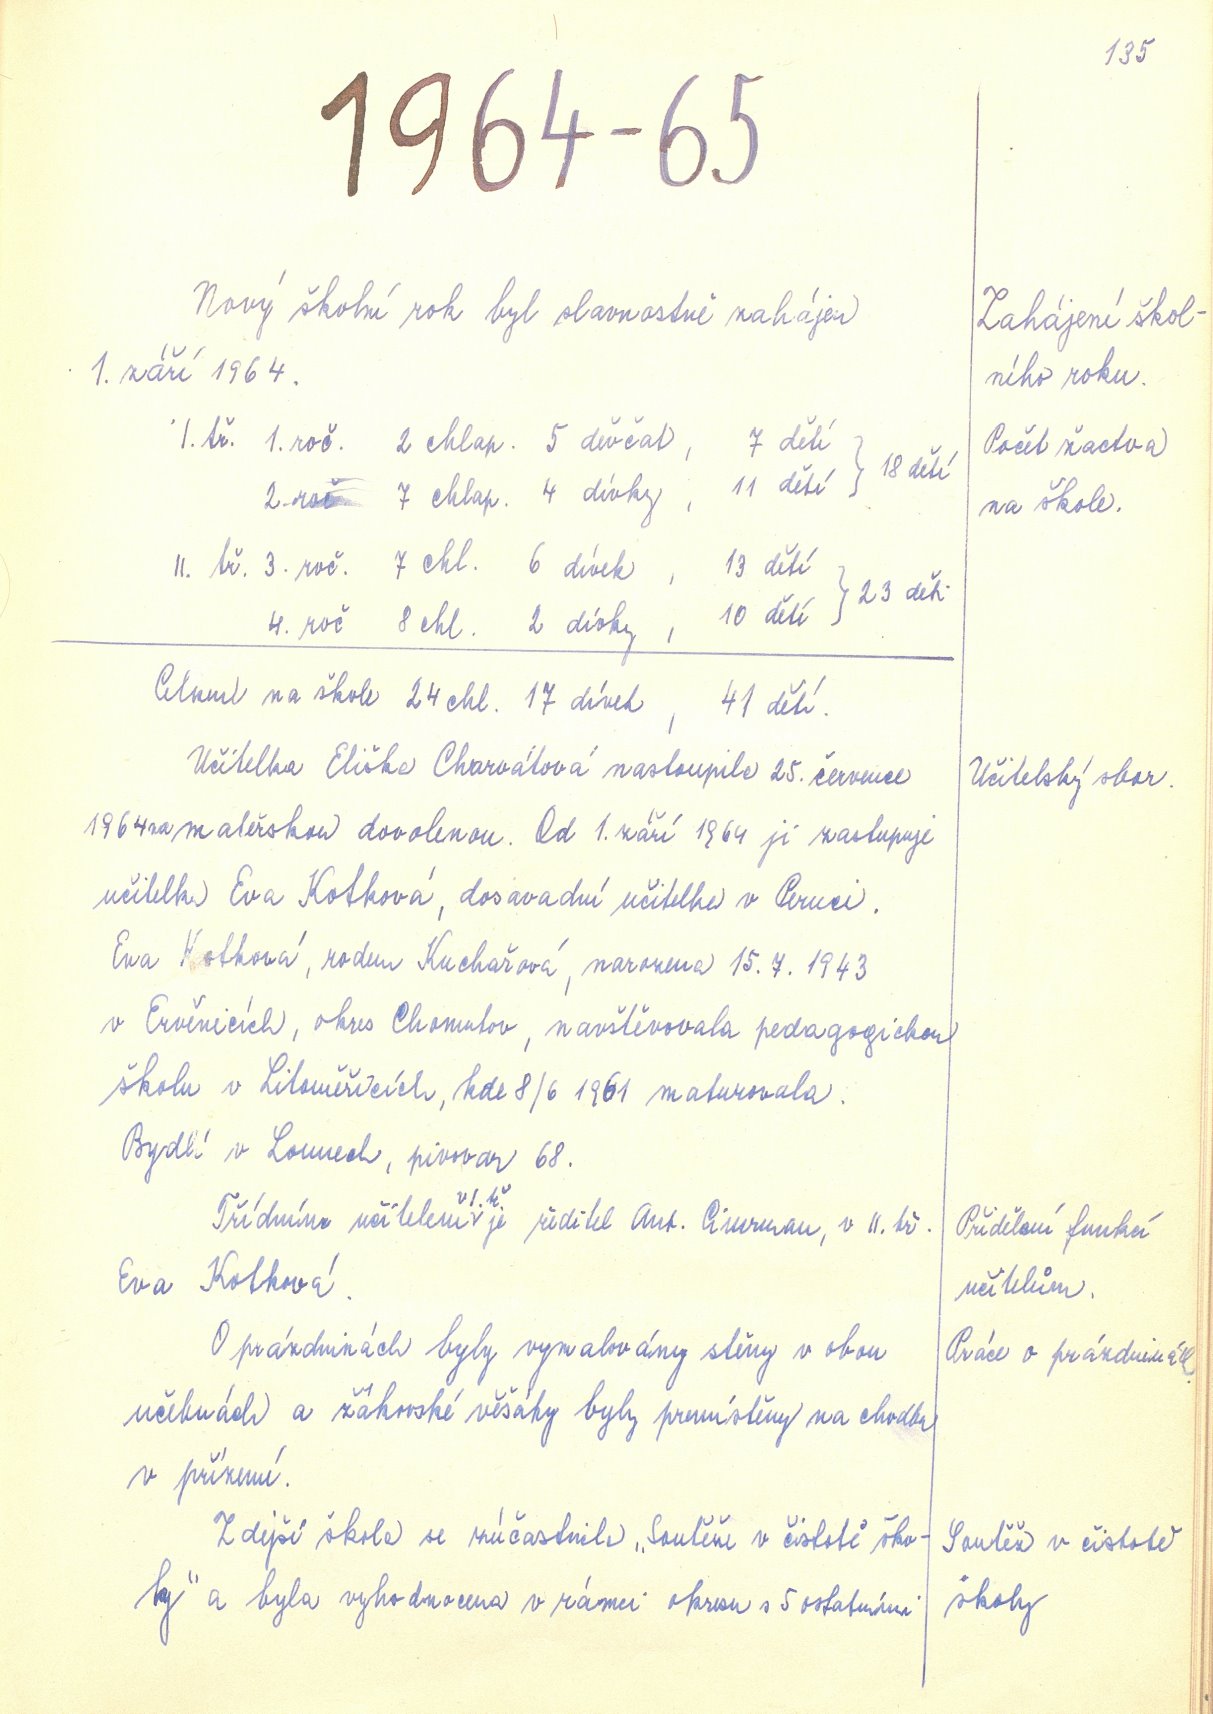 135
1964-65
Nový školní rok byl slavnostně zahájen
Zahájení škol-
1. září 1964.
ního roku.
I. tř. 1. roč. 2 chlap. 5 děvčat, 7 dětí
2. roč 7 chlap. 4 dívky, 11 dětí } 18 dětí
Počet žactva
na škole.
II. tř. 3. roč. 7 chl. 6 dívek, 13 dětí
4. roč 8 chl. 2 dívky, 10 dětí } 23 dětí
Celkem na škole 24 chl. 17 dívek, 41 dětí.
Učitelka Eliška Charvátová nastoupila 25. července
Učitelský sbor.
1964 na mateřskou dovolenou. Od 1. září 1964 ji zastupuje
učitelka Eva Kotková, dosavadní učitelka v Peruci.
Eva Kotková, rodem Kuchařová, narozena 15. 7. 1943
v Ervěnicích, okres Chomutov, navštěvovala pedagogickou
školu v Litoměřicích, kde 8/6 1961 maturovala.
Bydlí v Lounech, pivovar 68.
Třídním učitelem v I. tř. je ředitel Ant. Cimrman, v II. tř.
Přidělení funkcí
Eva Kotková.
učitelům.
O prázdninách byly vymalovány stěny v obou
Práce o prázdninách.
učebnách a žákovské věšáky byly premístěny na chodbu
v přízemí.
Zdejší škola se zúčastnila „Soutěže v čistotě ško-
Soutěž v čistotě
ly" a byla vyhodnocena v rámci okresu s 5 ostatními
školy